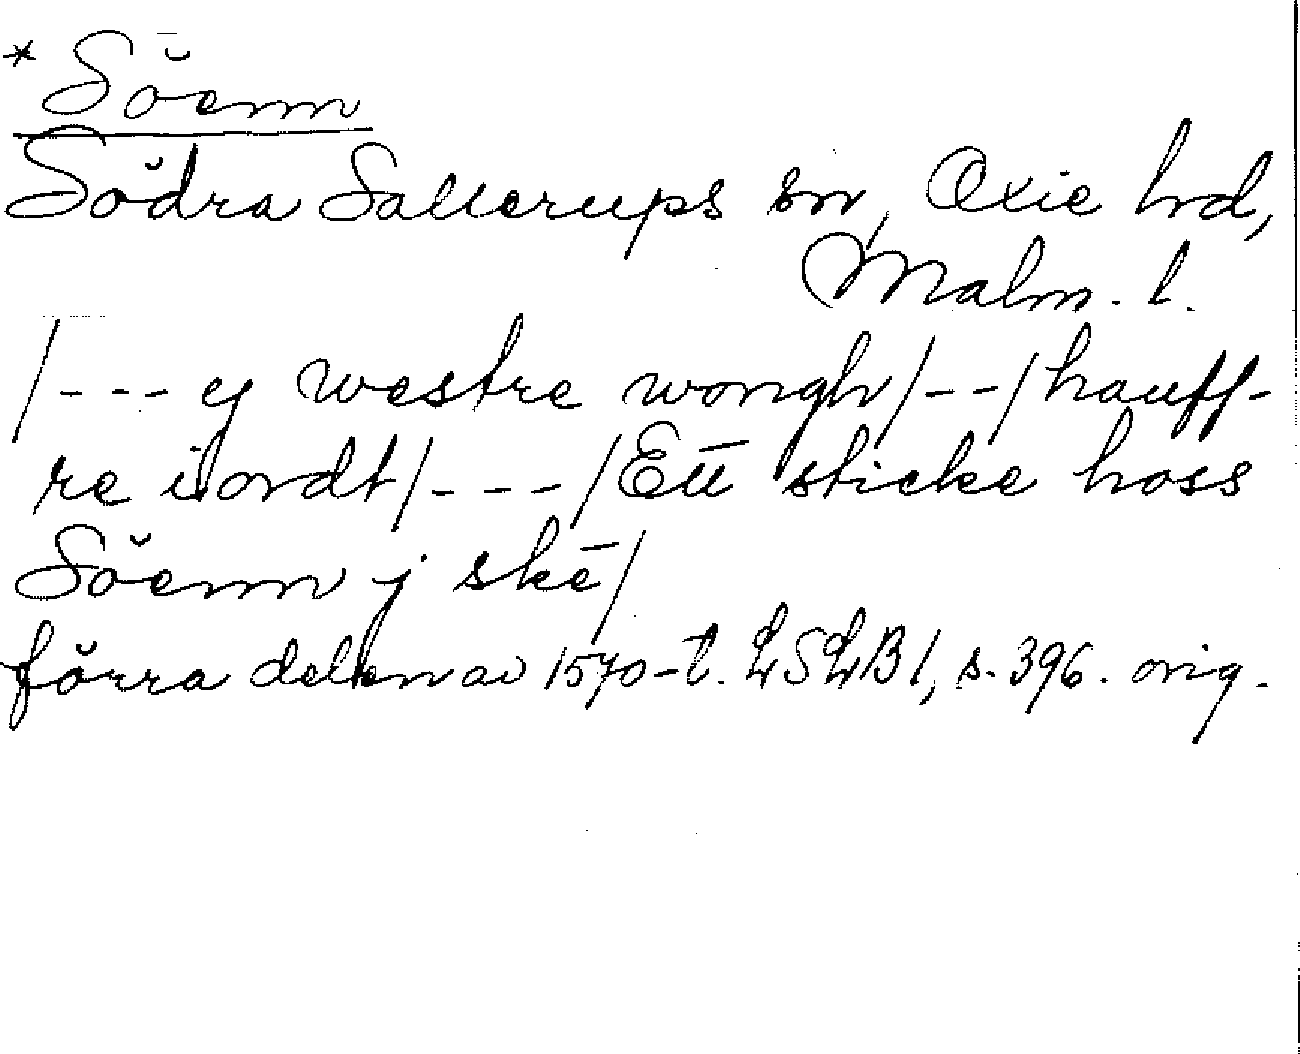 * Söenn
Södra Sallerups sn, Oxie hd,
Malm. l.
/--- ej westre wongh/--/hauff-
re iordt/---/Ett sticke hoss
Söenn j skē/
förra delen av 1570-t. LSLB 1, s. 396. orig.